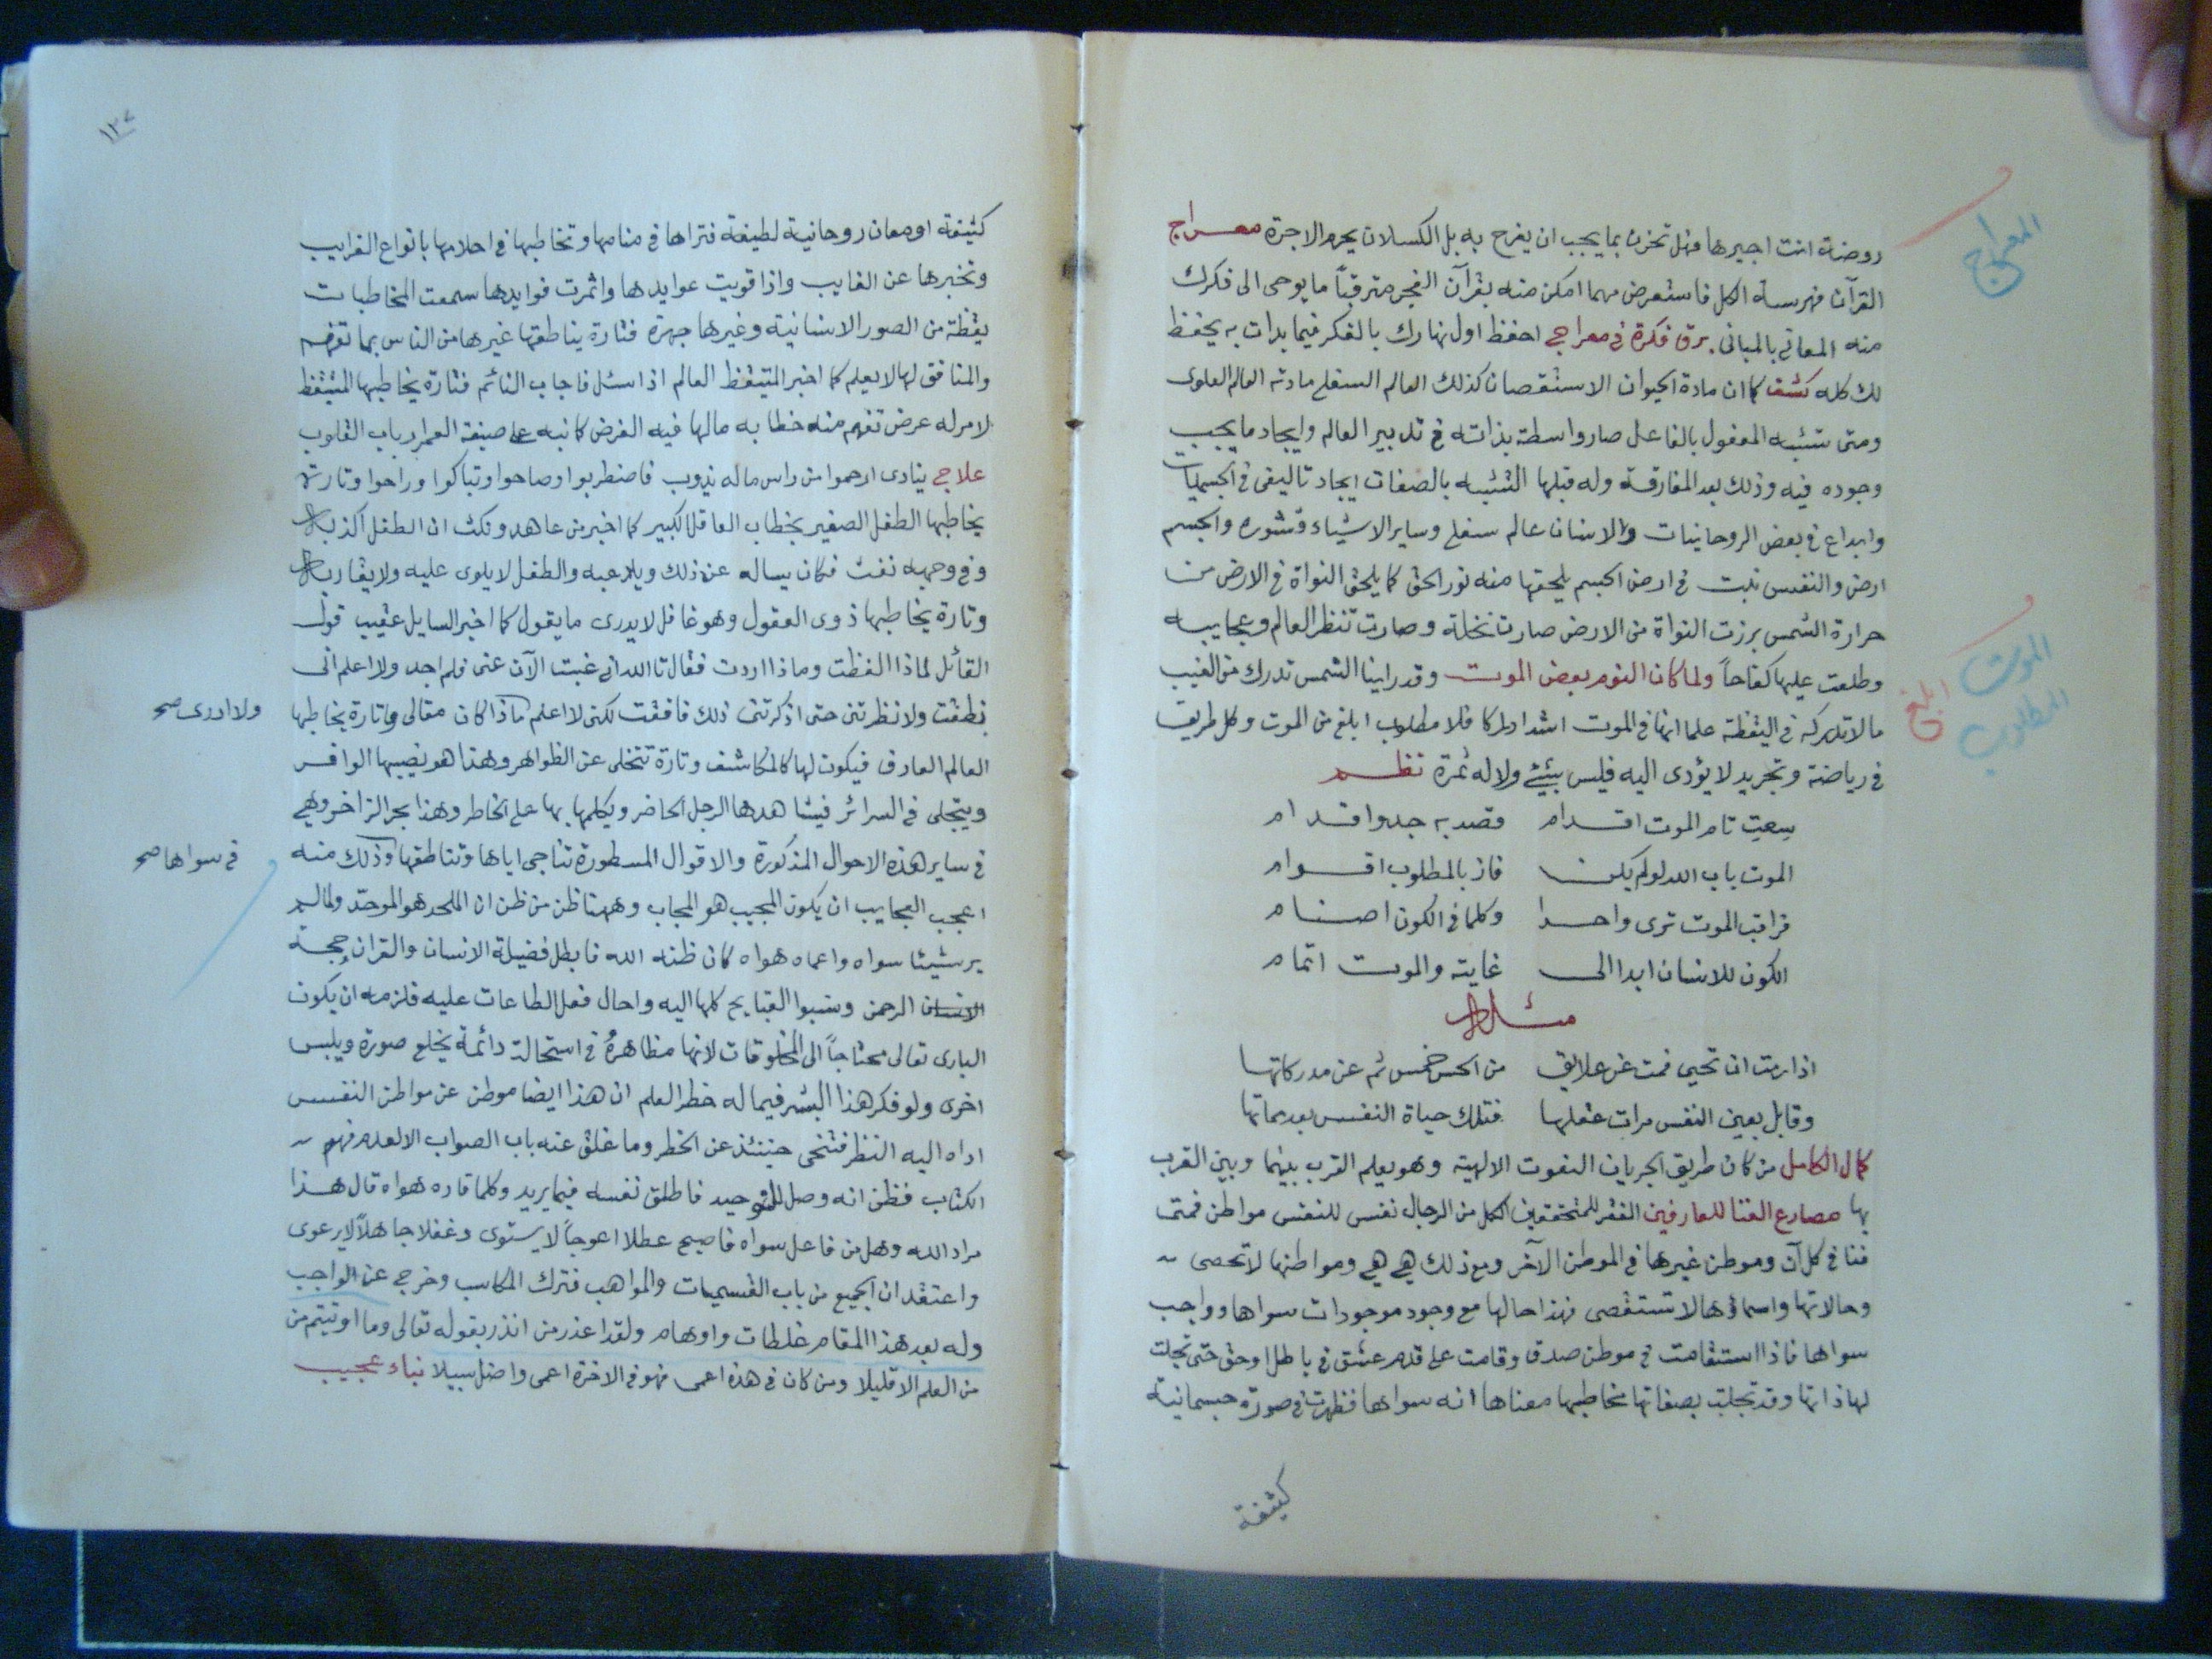 المعراج
روضة انت اجيرها فهل تحزن بما يجب ان يفرح به بل الكسلان يحرم الاجرة معراج
القرآن فهرسة الكل فاستعرض مهما امكن منه بقرآن الفجر مترقباً ما يوحى الى فكرك
منه المعانى بالمبانى برق فكرة فى معراجى احفظ اول نهارك بالفكر فيما بدات به يحفظ
لك كله كشف كما ان مادة الحيوان الاستقصان كذلك العالم السفلى مادته العالم العلوى
ومتى تشبه المعفول بالفاعل صار واسطة بذاته فى تدبير العالم وايجاد ما يجب
وجوده فيه وذلك بعد المفارقة وله قبلها التشبه بالصفات ايجاد تاليفى فى الجسميات
وابداع فى بعض الروحانيات والانسان عالم سفلى وساير الاشياء قشوره والجسم
ارض والنفس نبت فى ارض الجسم يلحقها منه نور الحق كما يلحق النواة فى الارض من
حرارة الشمس برزت النواة من الارض صارت نخلة وصارت تنظر العالم وعجايبه
وطلعت عليها كفاحاً ولما كان النوم بعض الموت وقد راينا الشمس تدرك من الغيب
الموت
المطلوب
ابلغ
ما لا تدركه فى اليقظة علما انها فى الموت اشد ادراكا فلا مطلوب ابلغ من الموت وكل طريق
فى رياضة وتجريد لا يؤدى اليه فليس بشيئ ولا له ثمرة نظم
سعت تام الموت اقدام قصد به جد واقدام
الموت باب الله لو لم يكن فاز بالمطلوب اقوام
فراقب الموت ترى واحدا وكلما فى الكون اصنام
الكون للانسان ابدا الى غايته والموت اتمام
مثله
اذا رمت ان تحيى فمت عن علايق من الحس خمس ثم عن مدركاتها
وقابل بعين النفس مرات عقلها فتلك حياة النفس بعد مماتها
كمال الكامل من كان طريق الجريان النعوت الالهية وهو يعلم القرب بينهما وبين القرب
بها مصارع الفنا للعارفين الفقر للمتحققين الكل من الرجال نفس للنفس مواطن فمتى
فنا فى كل آن وموطن غيرها فى الموطن الآخر ومع ذلك هى هى ومواطنها لا تحصى
وحالاتها واسماؤها لا تستقصى فهذا حالها مع وجود موجودات سواها وواجب
سواها فاذا استقامت فى موطن صدق وقامت على قدم عشق فى باطل او حق حتى تجلت
لها ذاتها وقد تجلت بصفاتها مخاطبها معناها انه سواها فظهرت فى صورة جسمانية
كثيفة
١٣٧
كثيفة او معان روحانية لطيفة فتراها فى منامها وتخاطبها فى احلامها بانواع الغرايب
وتخبرها عن الغايب واذا قويت عوايدها واثمرت فوايدها سمعت المخاطبات
يقظة من الصور الانسانية وغيرها جهرة فتارة يناطقها غيرها من الناس بما تفهم
والمنافق لها لا يعلم كما اخبر المتيقظ العالم اذا سئل فاجاب النائم فتارة يخاطبها المتيقظ
لامر له عرض تفهم منه خطابه مالها فيه الغرض كانبه على صيغة العمل ارباب القلوب
علاجى ينادى ارحموا من راس ماله يذوب فاضطربوا وصاحوا وتباكوا وراحوا وتارة
يخاطبها الطفل الصغير بخطاب العاقل الكبير كما اخبر من عاهد ونكث ان الطفل اكذبه
وفى وجهه نفث فكان يساله عن ذلك ويلاعبه والطفل لا يلوى عليه ولا يقاربه
وتارة يخاطبها ذوى العقول وهو غافل لا يدرى ما يقول كما اخبر السايل عقيب قول
القائل لماذا الفظت وماذا اردت فقال تالله انى غبت الآن عنى فلم اجد ولا اعلم انى
نطقت ولا نظرتنى حتى اذكرتنى ذلك فافقت لكنى لا اعلم ماذا كان مقالى وتارة يخاطبها
ولا ادرى صح
العالم العارف فيكون لها كالمكاشف وتارة تتخلى عن الظواهر وهذا هو نصيبها الوافر
ويتجلى فى السرائر فيشاهدها الرجل الحاضر ويكلمها بها على الخاطر وهذا بحر الزاخر وهى
فى ساير هذه الاحوال المذكورة والاقوال المسطورة تناجى اياها وتناطقها وذلك منه
فى سواها صح
اعجب العجايب ان يكون المجيب هو المجاب وههنا ظن من ظن ان الملحد هو الموحد ولما لم
ير شيئا سواه واعماه هواه كان ظنه الله فابطل فضيلة الانسان والقران حجة
الانسان الرحمن ونسبوا القبايح كلها اليه واحال فعل الطاعات عليه فلزمه ان يكون
البارى تعالى محتاجاً الى المخلوقات لانها مظاهره فى استحالة دائمة يخلع صورة ويلبس
اخرى ولو فكر هذا البشر فيما له خطر العلم ان هذا ايضا موطن عن مواطن النفس
اداه اليه النظر فتنحى حينئذ عن الخطر وما غلق عنه باب الصواب الا لعدم فهم
الكتاب فظن انه وصل للتوحيد فاطلق نفسه فيما يريد وكلما قاده هواه قال هذا
مراد الله وهل من فاعل سواه فاصبح عطلا اعوجاً لا يستوى وغفلا جاهلاً لا يرعوى
واعتقد ان الجميع من باب القسيمات والمواهب فترك المكاسب وخرج عن الواجب
وله بعد هذا المقام غلطات واوهام ولقد اعذر من انذر بقوله تعالى وما اوتيتم من
من العلم الا قليلا ومن كان فى هذه اعمى فهو فى الاخرة اعمى واضل سبيلا نباء عجيب